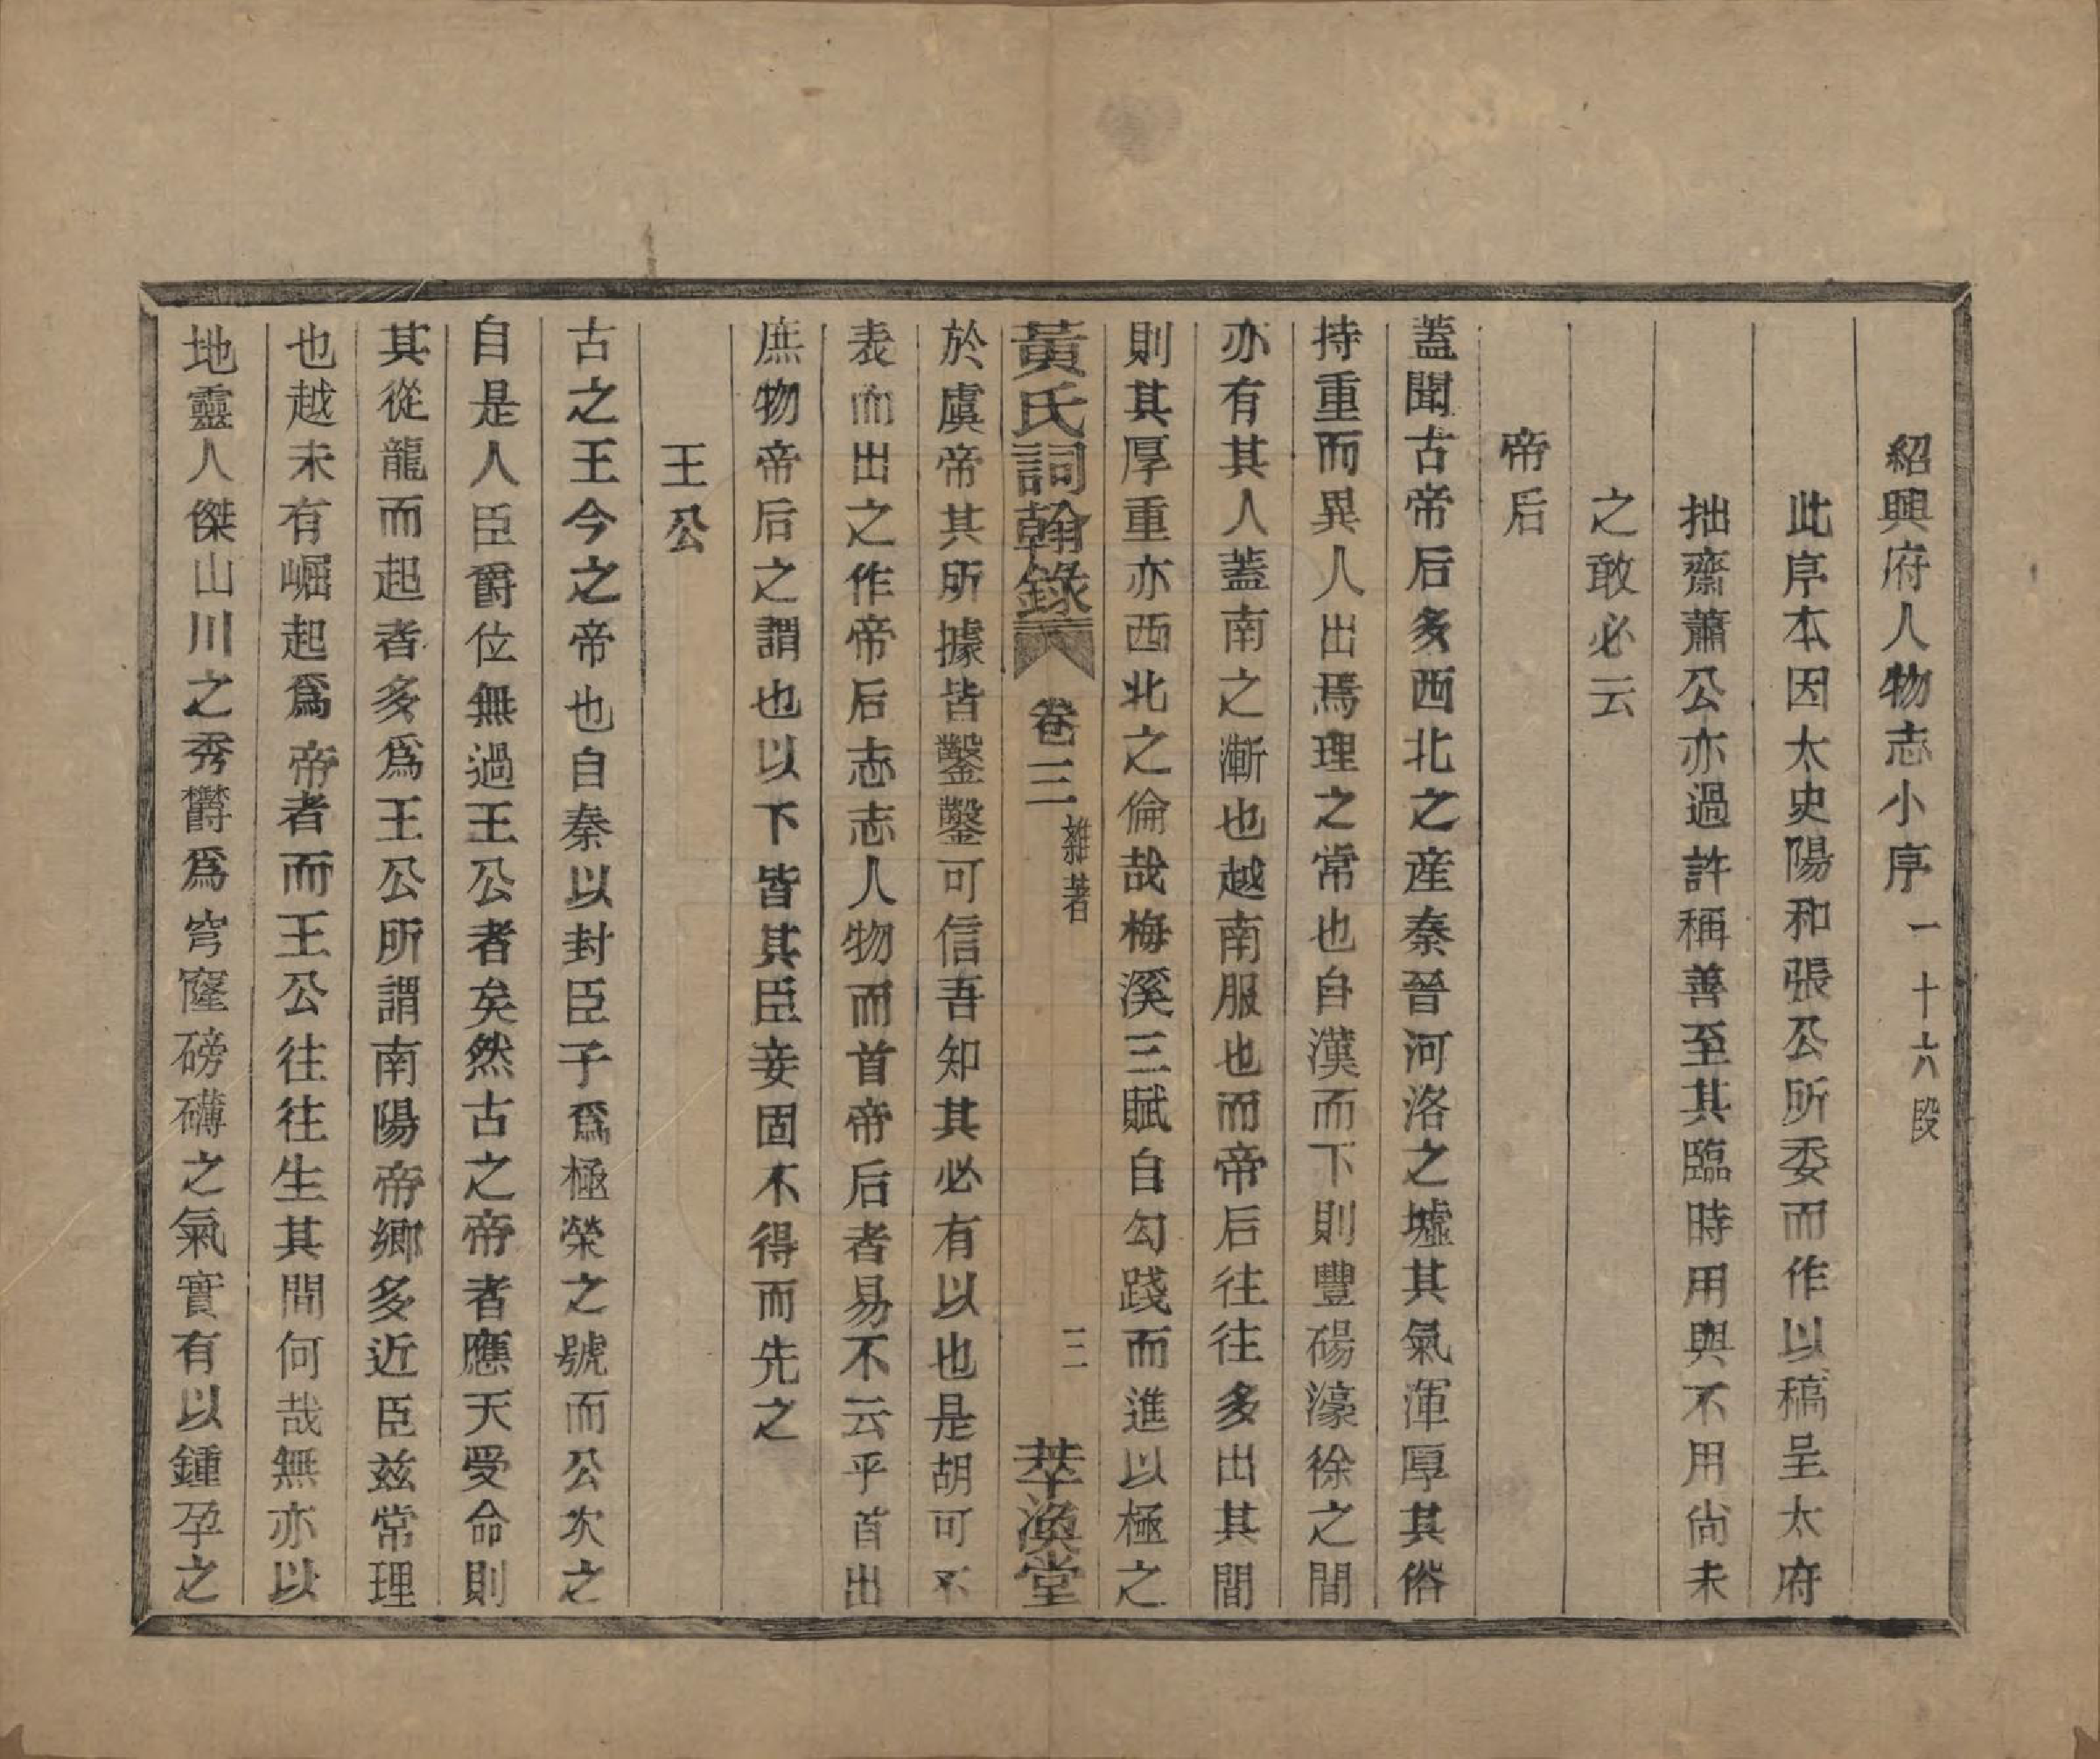 紹興府人物志小序一十六段
此序本因太史陽和張公所委而作以稿呈太府
拙齋蕭公亦過許稱善至其臨時用與不用尙未
之敢必云
帝后
蓋聞古帝后多西北之産秦晉河洛之墟其氣渾厚其俗
持重而異人出焉理之常也自漢而下則豐碭濠徐之間
亦有其人蓋南之漸也越南服也而帝后往往多出其間
則其厚重亦西北之倫哉梅溪三賦自勾踐而進以極之
黃氏詞翰錄 卷三 雜著 三 萃渙堂
於虞帝其所據皆鑿鑿可信吾知其必有以也是胡可不
表而出之作帝后志志人物而首帝后者易不云乎首出
庶物帝后之謂也以下皆其臣妾固不得而先之
王公
古之王今之帝也自秦以封臣子爲極榮之號而公次之
自是人臣爵位無過王公者矣然古之帝者應天受命則
其從龍而起者多爲王公所謂南陽帝鄉多近臣兹常理
也越未有崛起爲帝者而王公往往生其間何哉無亦以
地靈人傑山川之秀欝爲穹窿磅礴之氣實有以鍾孕之